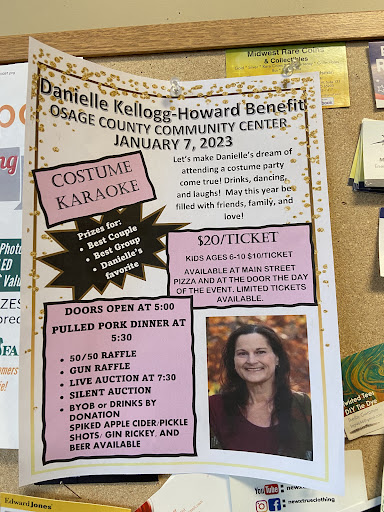 Danielle Kellogg-Howard Benefit
OSAGE COUNTY COMMUNITY CENTER
JANUARY 7, 2023
COSTUME
KARAOKE
Let's make Danielle's dream of
attending a costume party
come true! Drinks, dancing,
and laughs! May this year be
filled with friends, family, and
love!
Prizes for:
• Best Couple
• Best Group
• Danielle's
favorite
$20/TICKET
KIDS AGES 6-10 $10/TICKET
AVAILABLE AT MAIN STREET
PIZZA AND AT THE DOOR THE DAY
OF THE EVENT. LIMITED TICKETS
AVAILABLE.
DOORS OPEN AT 5:00
PULLED PORK DINNER AT
5:30
• 50/50 RAFFLE
• GUN RAFFLE
• LIVE AUCTION AT 7:30
• SILENT AUCTION
• BYOB or DRINKS BY
DONATION
SPIKED APPLE CIDER/PICKLE
SHOTS/ GIN RICKEY, AND
BEER AVAILABLE
Midwest Rare Coins
& Collectibles
Photo
Value
Edward Jones
DIY Tie Dye
YouTube